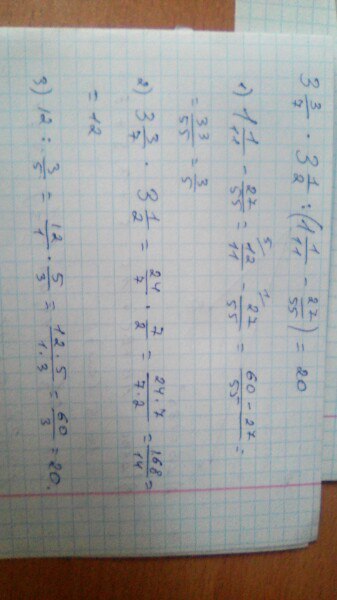 3 3/7 · 3 1/2 : (1 1/11 - 27/55) = 20
1) 1 1/11 - 27/55 = 12/11 5 - 27/55 1 = 60-27/55 =
= 33/55 = 3/5
2) 3 3/7 · 3 1/2 = 24/7 · 7/2 = 24·7/7·2 = 168/14 =
= 12
3) 12 : 3/5 = 12/1 · 5/3 = 12·5/1·3 = 60/3 = 20.